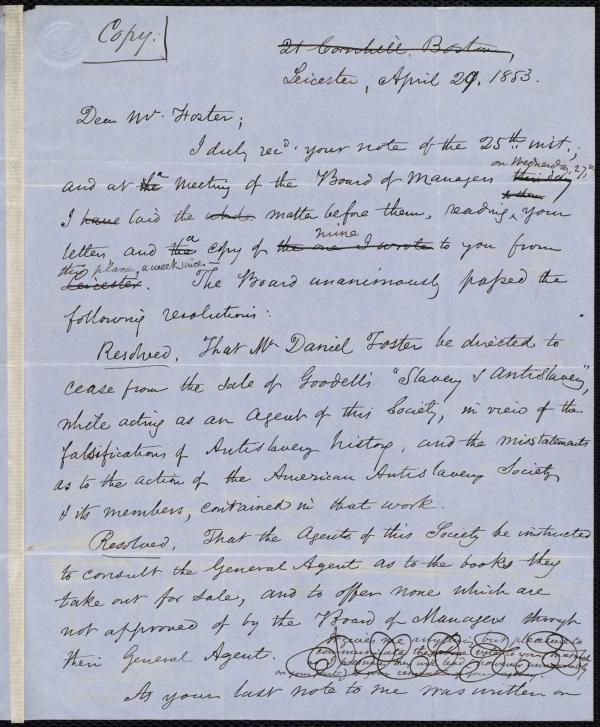 Copy.
21 Cornhill, Boston,
Leicester, April 29, 1853.
Dear Mr. Foster;
I duly recd. your note of the 25th inst.;
on Wednesday, 27,
and at the a meeting of the Board of Managers this day
to them
I have laid the whole matter before them, reading your
mine
letter, and the a copy of the one I wrote to you from
this place, a week since.
Leicester. The Board unanimously passed the
following resolutions:
Resolved, That Mr. Daniel Foster be directed to
cease from the sale of Goodell's "Slavery & Antislavery",
while acting as an Agent of this Society, in view of the
falsifications of Antislavery history, and the misstatements
as to the action of the American Antislavery Society
& its members, contained in that work.
Resolved, That the Agents of this Society be instructed
to consult the General Agent as to the books they
take out for sale, and to offer none which are
not approved of by the Board of Managers through
their General Agent.
gives me anything but pleasure to
communicate these votes to you
I presume they will lead
on your part, to your
As your last note to me was written on